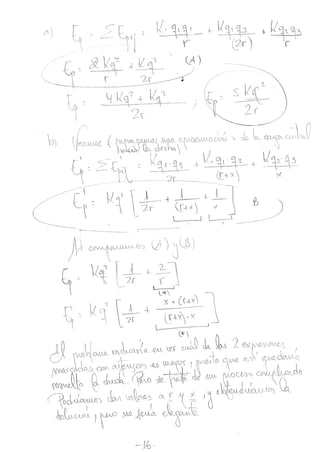 a) Ep = ΣEpij = K·q1q2/r + K·q1q3/(2r) + K·q2q3/r
Ep = 2Kq²/r + Kq²/2r (A)
Ep = 4Kq² + Kq²/2r ; Ep = 5Kq²/2r
b) Veamos (supongamos una aproximación de la carga central
hacia la dcha)
E'p = ΣE'pij = Kq1·q3/2r + K·q1·q2/(r+x) + Kq2·q3/x
E'p = Kq² [1/2r + 1/(r+x) + 1/x] B
Si comparamos (A) y (B)
Ep = Kq² [1/2r + 2/r]
(*)
E'p = Kq² [1/2r + x+(r+x)/(r+x)·x]
(*)
El problema radicaría en ver cuál de las 2 expresiones
marcadas con asteriscos es mayor, puesto que así quedaría
resuelta la duda. Pero se trata de un proceso complicado
Podríamos dar valores a r y x, y obtendríamos la
solución, pero no sería elegante.
-16-